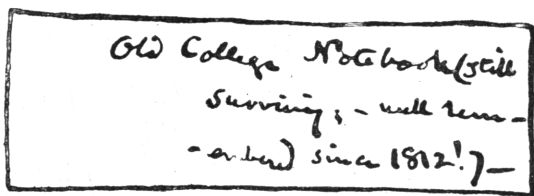 Old College Notebook (still
surviving, – well rem–
–embered since 1812!) –